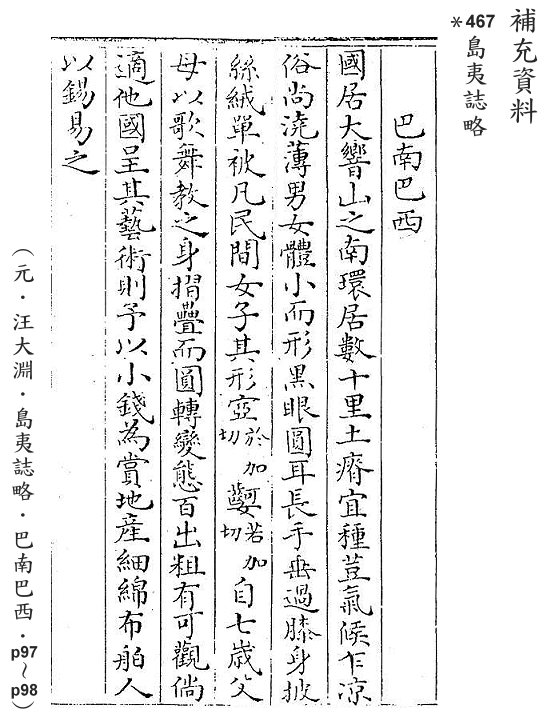 補充資料
*467 島夷誌略
巴南巴西
國居大響山之南環居數十里土瘠宜種荳氣候乍涼
俗尚澆薄男女體小而形黑眼圓耳長手垂過膝身披
絲絨單被凡民間女子其形瘂於加切
若加切自七歲父
母以歌舞教之身摺疊而圓轉變態百出粗有可觀倘
適他國呈其藝術則予以小錢為賞地產細綿布舶人
以錫易之
(元．汪大淵．島夷誌略．巴南巴西．p97~p98)